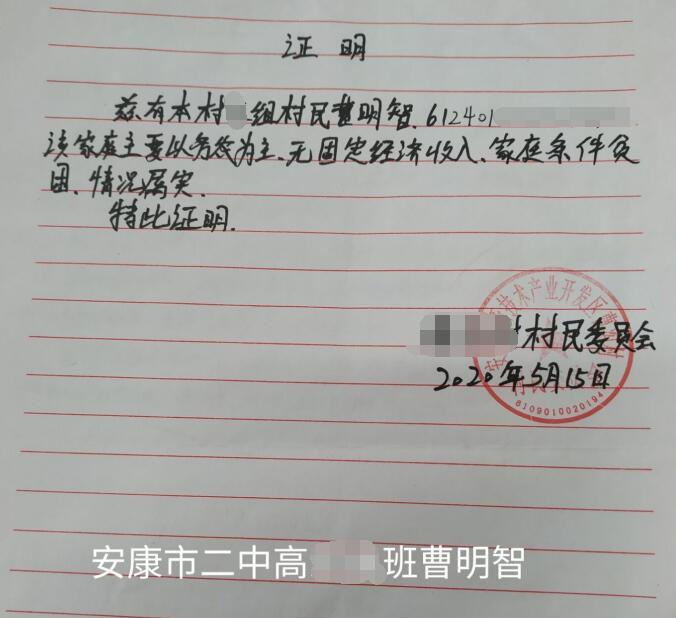 证明
兹有本村 组村民曹明智.612401
该家庭主要以务农为主、无固定经济收入、家庭条件贫
困、情况属实.
特此证明.
技术产业开发区
村民委员会
2020年5月15日
6109010020194
安康市二中高 班曹明智